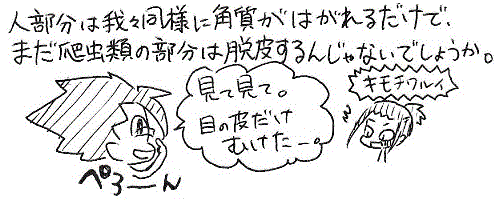 人部分は我々同様に角質がはがれるだけで、
まだ爬虫類の部分は脱皮するんじゃないでしょうか。
見て見て。
目の皮だけ
むけたー。
キモチワルイ
ペろーん